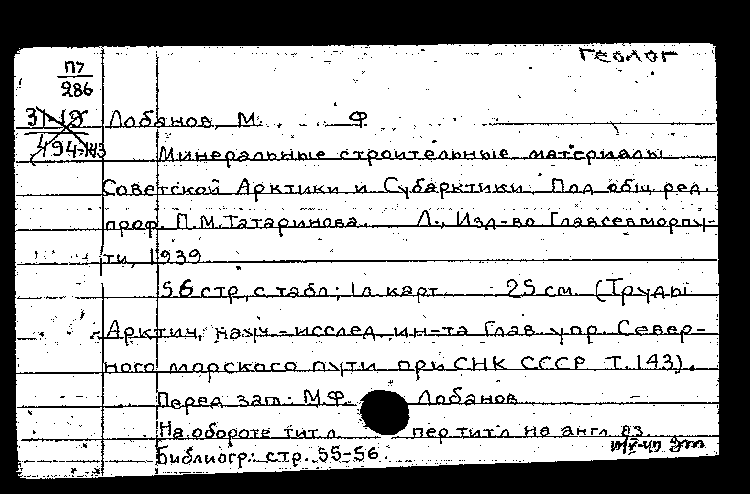 Геолог
П7
286
Лобанов, М. Ф.
494-143
Минеральные строительные материалы
Советской Арктики и Субарктики. Под общ. ред.
проф. П.М.Татаринова. Л., Изд-во Главсевморпу-
ти, 1939
56 стр. с табл; 1 л. карт. 25 см. (Труды
Арктич. науч.-исслед. ин-та Глав. упр. Север-
ного морского пути при СНК СССР Т.143).
Перед заг: М.Ф. Лобанов
На обороте тит. л. пер. тит. л. на англ. яз.
Библиогр: стр. 55-56